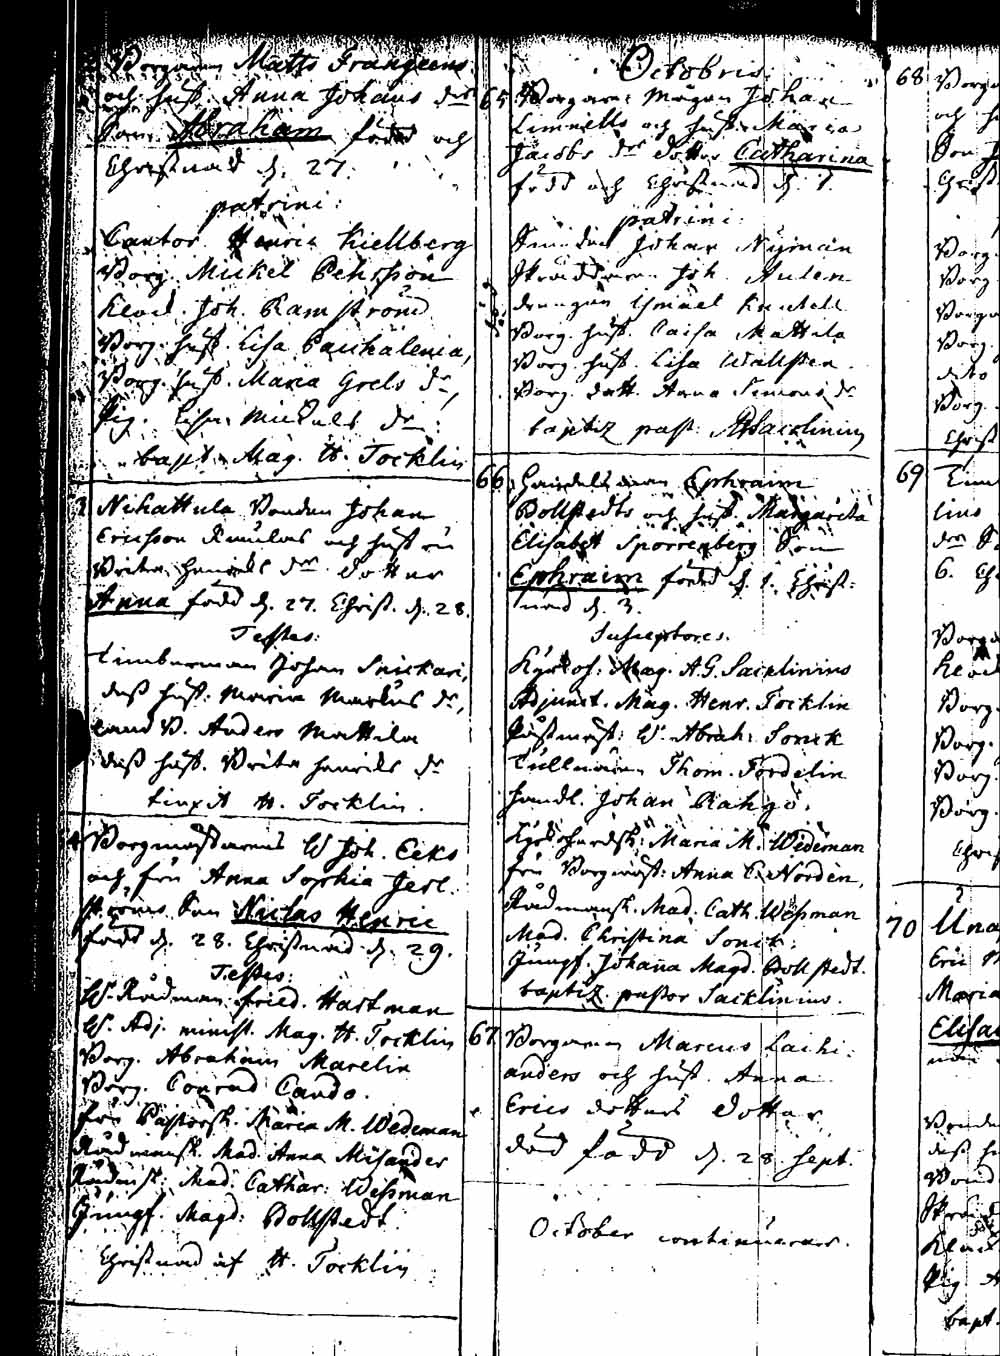 Borgaren Matts Frangeens
och hust. Anna Johans dr
Son Abraham född och
Christnad d. 27.
patrini:
Cantor Henric Kiellberg
Borg. Mickel Pehrsson
Klock. Joh. Ramström
Borg. hust. Lisa Paukalenia,
Borg. hust. Maria Grels dr,
Pig. Lisa Mickels dr.
bapt. Mag. H. Focklin
Nihattula Bonden Johan
Ericsson och hustrus
Brita Henrics dr dotter
Anna född d. 27. Christ. d. 28.
Testes:
Timberman Johan Snickari,
dess hust: Maria Markus dr,
Land B. Anders Mattila
dess hust. Brita Henrics dr
tinxit H. Focklin.
Borgmästarens W Joh. Eeks
och fru Anna Sophia Jerl.
Son Niclas Henric
född d. 28. Christnad d. 29.
Testes:
W. Rådman Fried. Hartman
W. Adj. minist. Mag. H. Focklin
Borg. Abraham Marelin
Borg. Conrad Cando.
Fru Pastorsk. Maria M. Wedeman
Rådmansk. Mad. Anna Misander
Rådmsk: Mad. Cathar: Wessman
Jungf. Magd: Bollstedt
Christnad af H. Focklin
Octobris.
65. Borgare Mågen Johan
Limnells och hust. Maria
Jacobs dr dotter Catharina
född och Christnad d. 1.
patrini:
Smeden Johan Nyman
Skräddaren Joh. Aulen
drengen Ismael
Borg. hust. Caisa Mattila
Borg. hust. Lisa Wallsten.
Borg. dott. Anna Simons dr
baptiz past. Sacklinius
66. Handelsman Ephraim
Bollstedts och hust. Margareta
Elisabet Sporrenberg Son
Ephraim född d. 1. Christ:
nad d. 3.
Susceptores.
Kyrkoh. Mag. A.G. Sacklinius
Adjunct. Mag. Henr. Focklin
Postmäst: W. Abrah: Sonck
Tullnären Thom. Fordelin
Handl. Johan Rahgo.
Kyrkoherdsk: Maria M. Wideman
Fru Borgmäst: Anna C. Norden,
Rådmansk. Mad. Cath. Wessman
Mad. Christina Sonck.
Jungf. Johana Magd. Bollstedt.
baptiz. pastor Sacklinius.
67. Borgaren Marcus Lachi-
anders och hust. Anna
Erics dotters dotter
död född d. 28 Sept.
October continuerar.
68
Borga
och h
Son J
Christ
Borg.
Borg
Borga
Borg.
dito
Borg.
Christ
69
Tim
lius
dr
6. Ch
Borga
Klock
Borg.
Borg.
Borg.
Borg.
Christ
70
Una
Eric
Maria
Elisa
Bonde
dess h
Bond
Klock
Pig A
bapt.